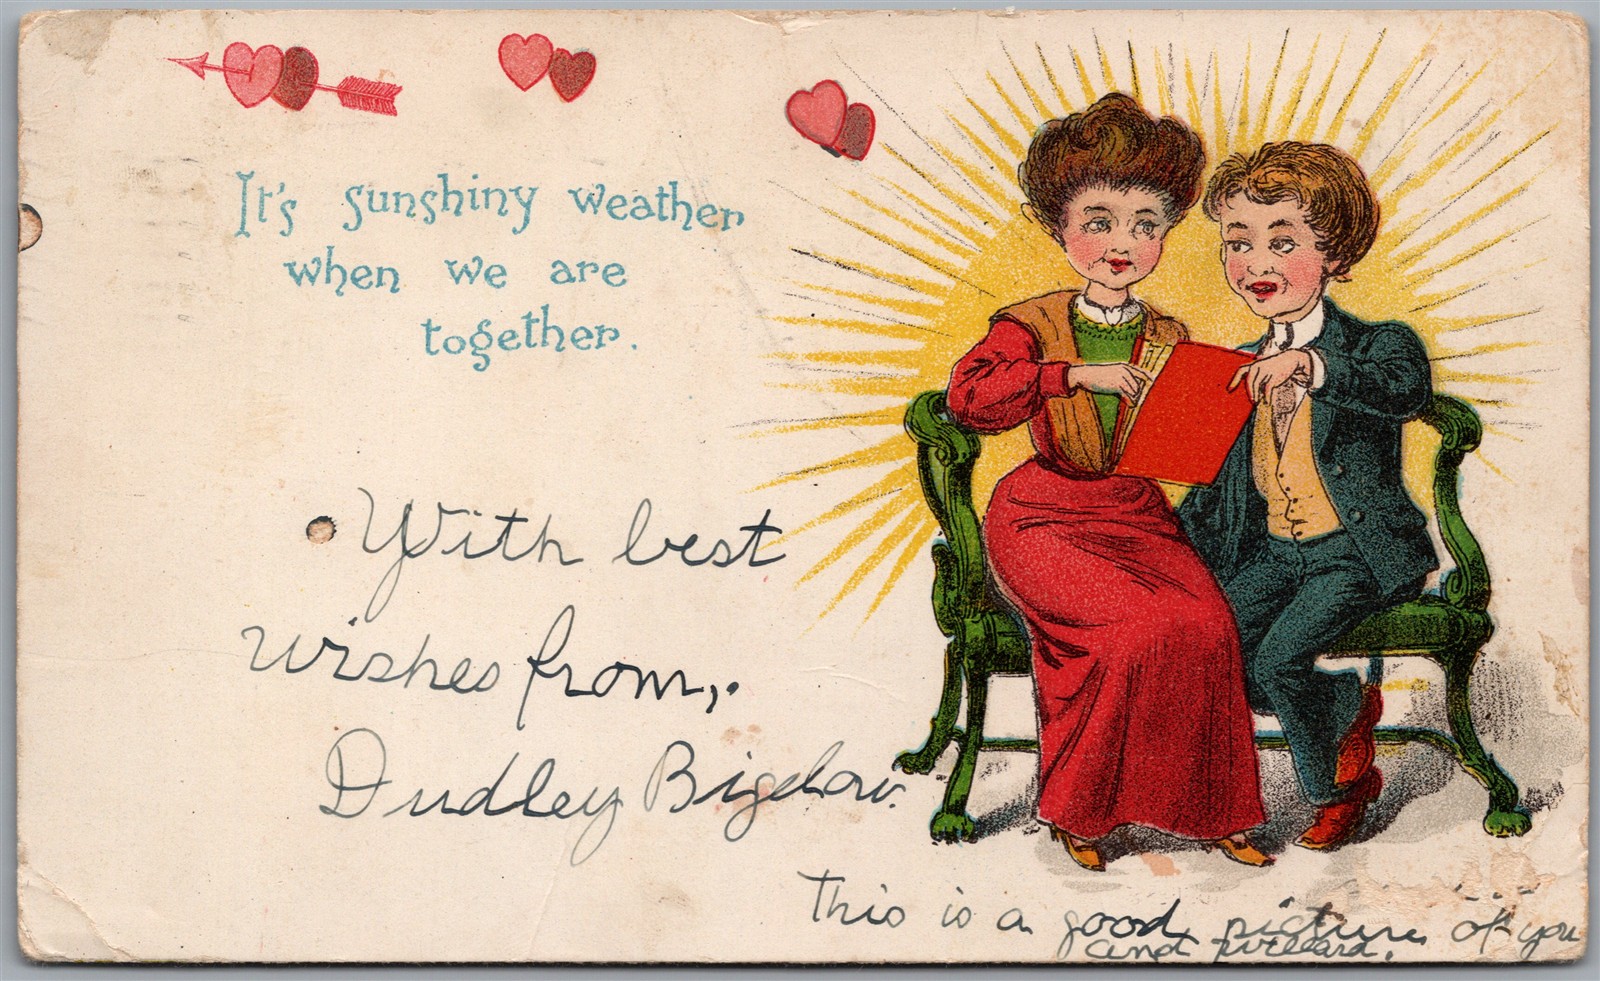 It's sunshiny weather
when we are
together.
With best
wishes from,.
Dudley Bigelow.
This is a good picture of you
and Willard.